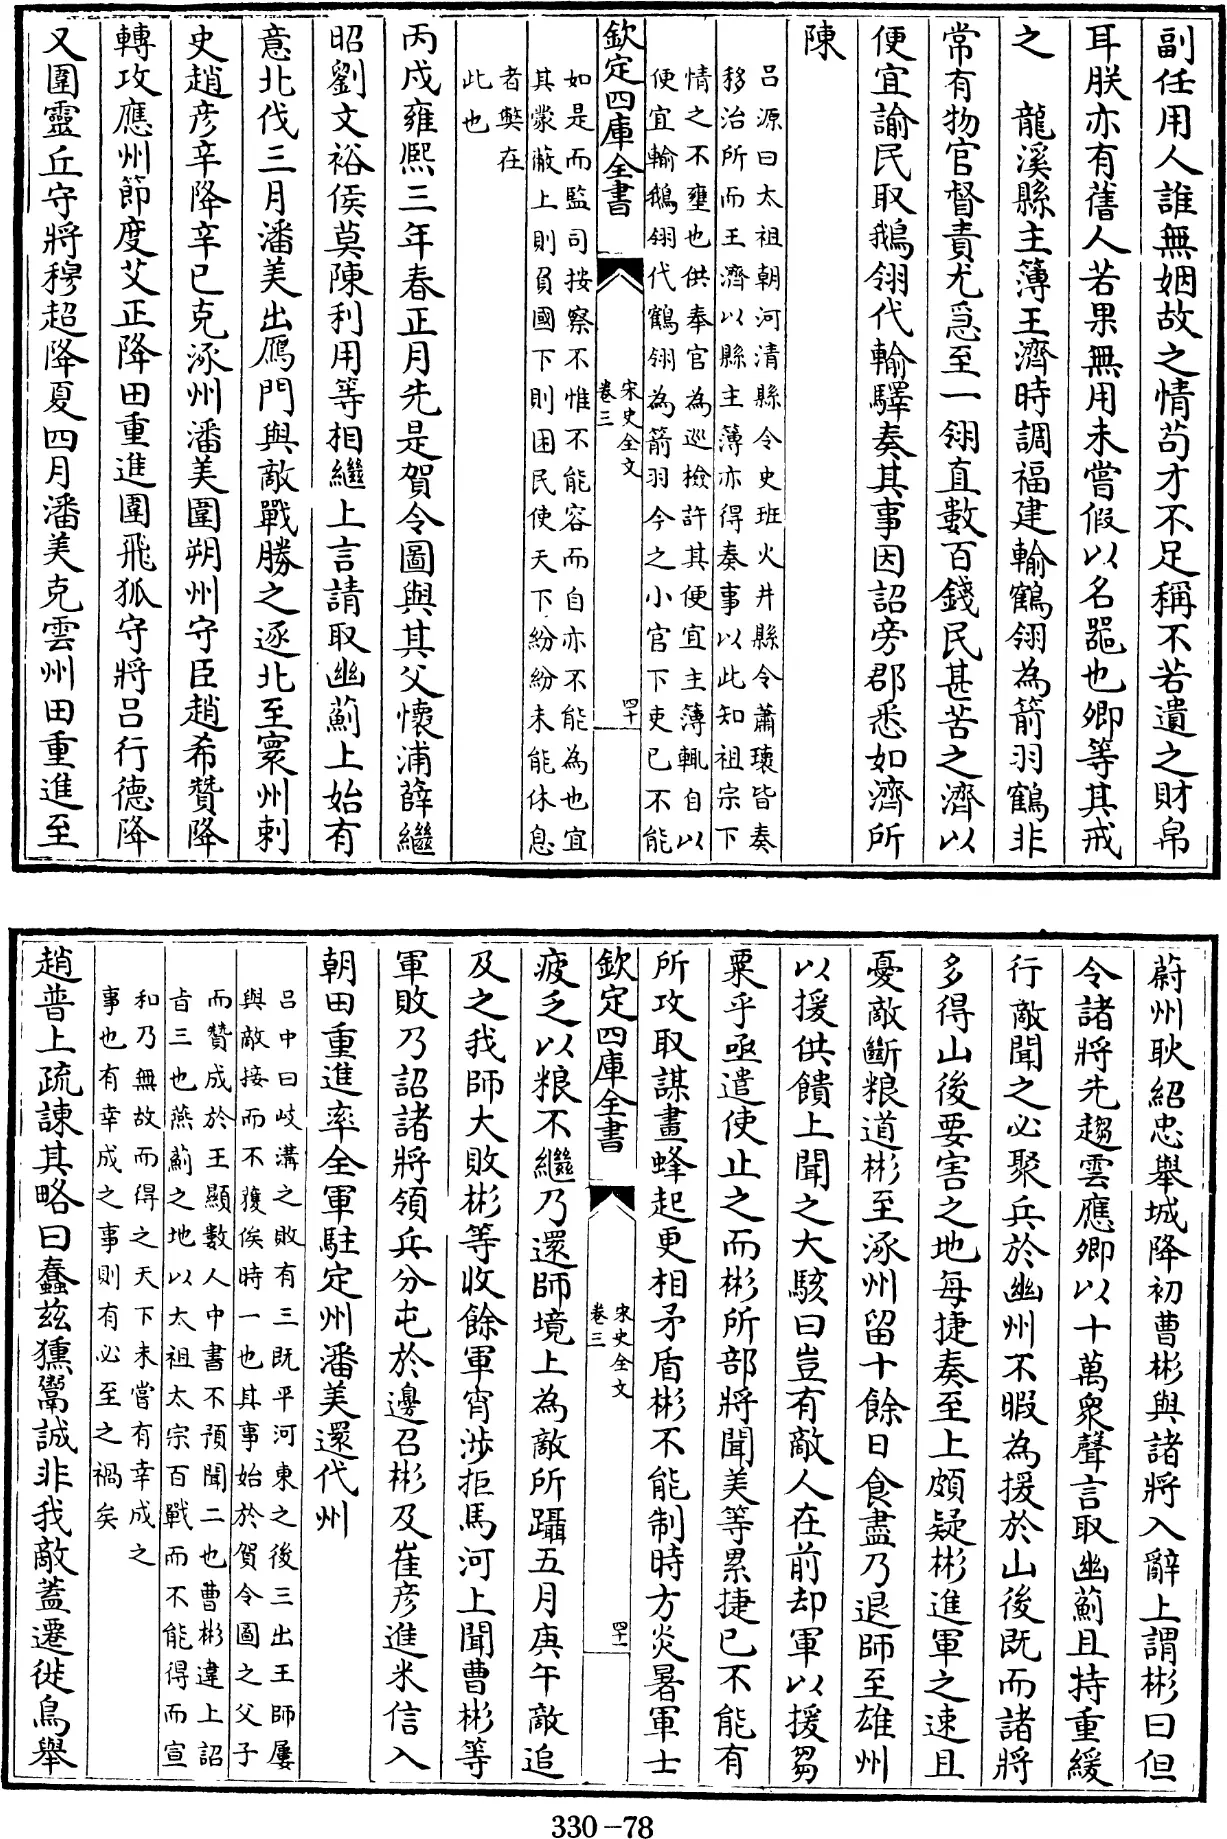 副任用人誰無姻故之情苟才不足稱不若遺之財帛
耳朕亦有舊人若果無用未嘗假以名器也卿等其戒
之　龍溪縣主簿王濟時調福建輸鶴翎為箭羽鶴非
常有物官督責尤急至一翎直數百錢民甚苦之濟以
便宜諭民取鵝翎代輸驛奏其事因詔旁郡悉如濟所
陳
呂源曰太祖朝河清縣令史班火井縣令蕭瓌皆奏
移治所而王濟以縣主薄亦得奏事以此知祖宗下
情之不壅也供奉官為巡檢許其便宜主薄輒自以
便宜輸鵝翎代鶴翎為箭羽今之小官下吏已不能
欽定四庫全書
宋史全文
卷三
四十
如是而監司按察不惟不能容而自亦不能為也宜
其蒙蔽上則負國下則困民使天下紛紛未能休息
者獘在
此也
丙戌雍熙三年春正月先是賀令圖與其父懷浦薛繼
昭劉文裕侯莫陳利用等相繼上言請取幽薊上始有
意北伐三月潘美出鴈門與敵戰勝之逐北至寰州刺
史趙彦辛降辛巳克涿州潘美圍朔州守臣趙希贊降
轉攻應州節度艾正降田重進圍飛狐守將呂行德降
又圍靈丘守將穆超降夏四月潘美克雲州田重進至
蔚州耿紹忠舉城降初曹彬與諸將入辭上謂彬曰但
令諸將先趨雲應卿以十萬衆聲言取幽薊且持重緩
行敵聞之必聚兵於幽州不暇為援於山後既而諸將
多得山後要害之地每捷奏至上頗疑彬進軍之速且
憂敵斷粮道彬至涿州留十餘日食盡乃退師至雄州
以援供饋上聞之大駭曰豈有敵人在前却軍以援芻
粟乎亟遣使止之而彬所部將聞美等累捷已不能有
所攻取謀畫蜂起更相矛盾彬不能制時方炎暑軍士
欽定四庫全書
宋史全文
卷三
四十一
疲乏以粮不繼乃還師境上為敵所躡五月庚午敵追
及之我師大敗彬等收餘軍宵涉拒馬河上聞曹彬等
軍敗乃詔諸將領兵分屯於邊召彬及崔彦進米信入
朝田重進率全軍駐定州潘美還代州
呂中曰岐溝之敗有三既平河東之後三出王師屢
與敵接而不獲俟時一也其事始於賀令圖之父子
而贊成於王顯數人中書不預聞二也曹彬違上詔
㫖三也燕薊之地以太祖太宗百戰而不能得而宣
和乃無故而得之天下未嘗有幸成之
事也有幸成之事則有必至之禍矣
趙普上疏諫其略曰蠢茲獯鬻誠非我敵蓋遷徙鳥舉
330-78